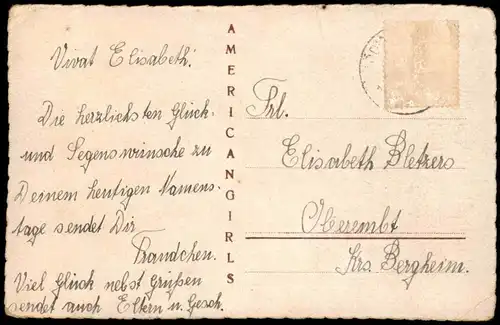 Vivat Elisabeth!
Die herzlichsten Glück-
und Segenswünsche zu
Deinem heutigen Namens-
tage sendet Dir
Trandchen.
Viel Glück nebst Grüßen
sendet auch Eltern u. Gesch.
AMERICANGIRLS
Frl.
Elisabeth Bletzers
Oberembt
Krs. Bergheim.